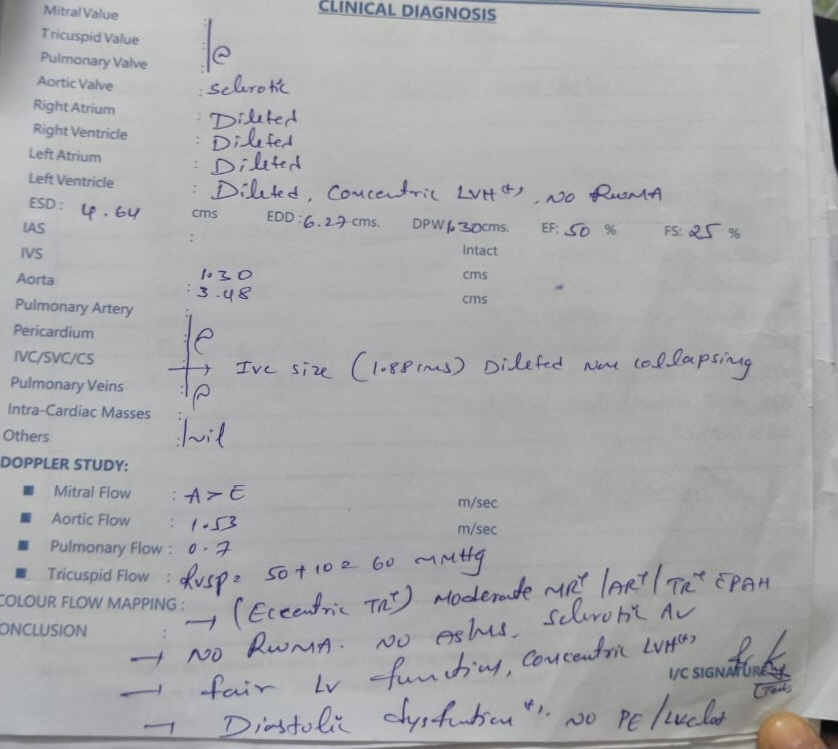 CLINICAL DIAGNOSIS
Mitral Value
Tricuspid Value
Pulmonary Valve
Aortic Valve : Sclerotic
Right Atrium : Dileted
Right Ventricle : Dileted
Left Atrium : Dileted
Left Ventricle : Dileted, Concentric LVH(+), NO RWMA
ESD: 4.64 cms EDD: 6.27 cms. DPW 1.30 cms. EF: 50 % FS: 25 %
IAS : Intact
IVS 1.30 cms
Aorta : 3.48 cms
Pulmonary Artery :
Pericardium
IVC/SVC/CS → IVC size (1.88 cms) Dileted Non collapsing
Pulmonary Veins
Intra-Cardiac Masses :
Others : Nil
DOPPLER STUDY:
Mitral Flow : A>E m/sec
Aortic Flow : 1.53 m/sec
Pulmonary Flow : 0.7
Tricuspid Flow : RVSP = 50+10 = 60 mmHg
COLOUR FLOW MAPPING : → (Eccentric TR+) Moderate MR+/AR+/TR+ c̄ PAH
ONCLUSION :
→ NO RWMA. NO AS/MS. Sclerotic AV
→ fair LV function, Concentric LVH(+)
I/C SIGNATURE
→ Diastolic dysfuntion(+). NO PE/LVclot